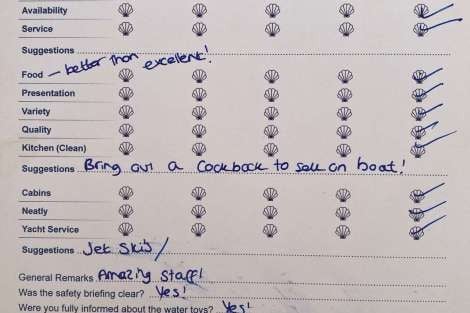 Availability
Service
Suggestions
Food - better than excellent!
Presentation
Variety
Quality
Kitchen (Clean)
Suggestions Bring out a Cookbook to sale on boat!
Cabins
Neatly
Yacht Service
Suggestions Jet Skis
General Remarks Amazing Staff!
Was the safety briefing clear? Yes!
Were you fully informed about the water toys? Yes!